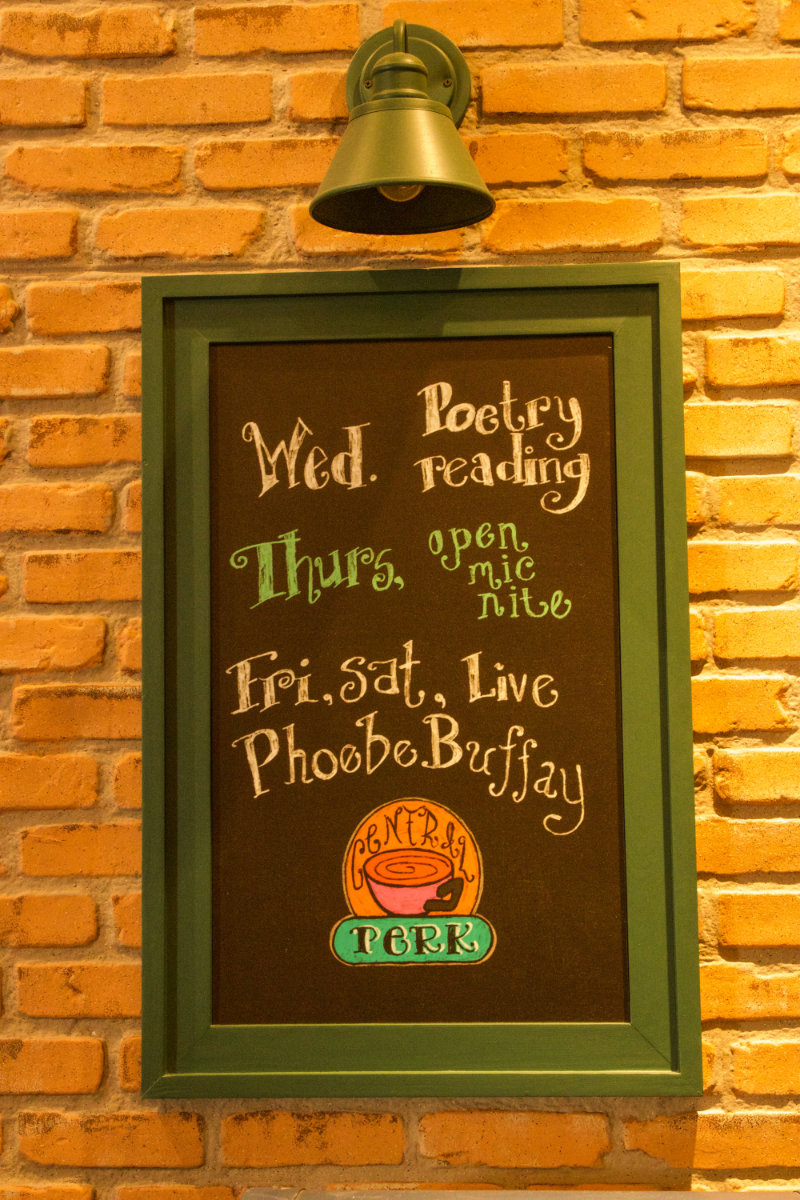 Wed. Poetry reading
Thurs, open mic nite
Fri, Sat, Live
Phoebe Buffay
CENTRAL
PERK